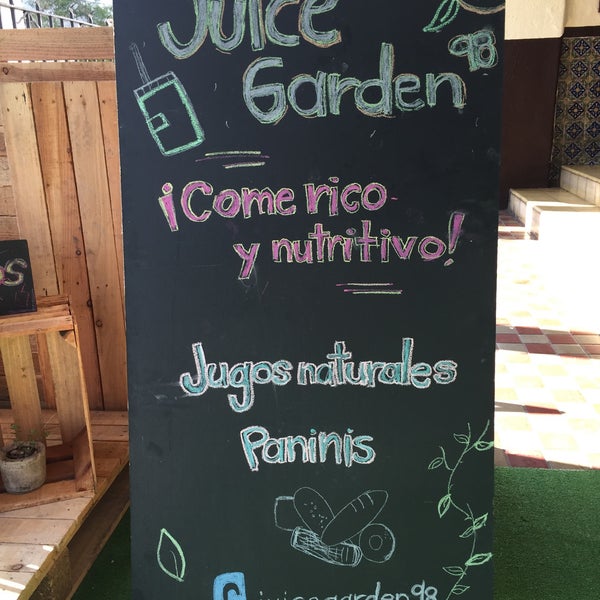 Juice
Garden 98
¡Come rico
y nutritivo!
Jugos naturales
Paninis
juicegarden98
os